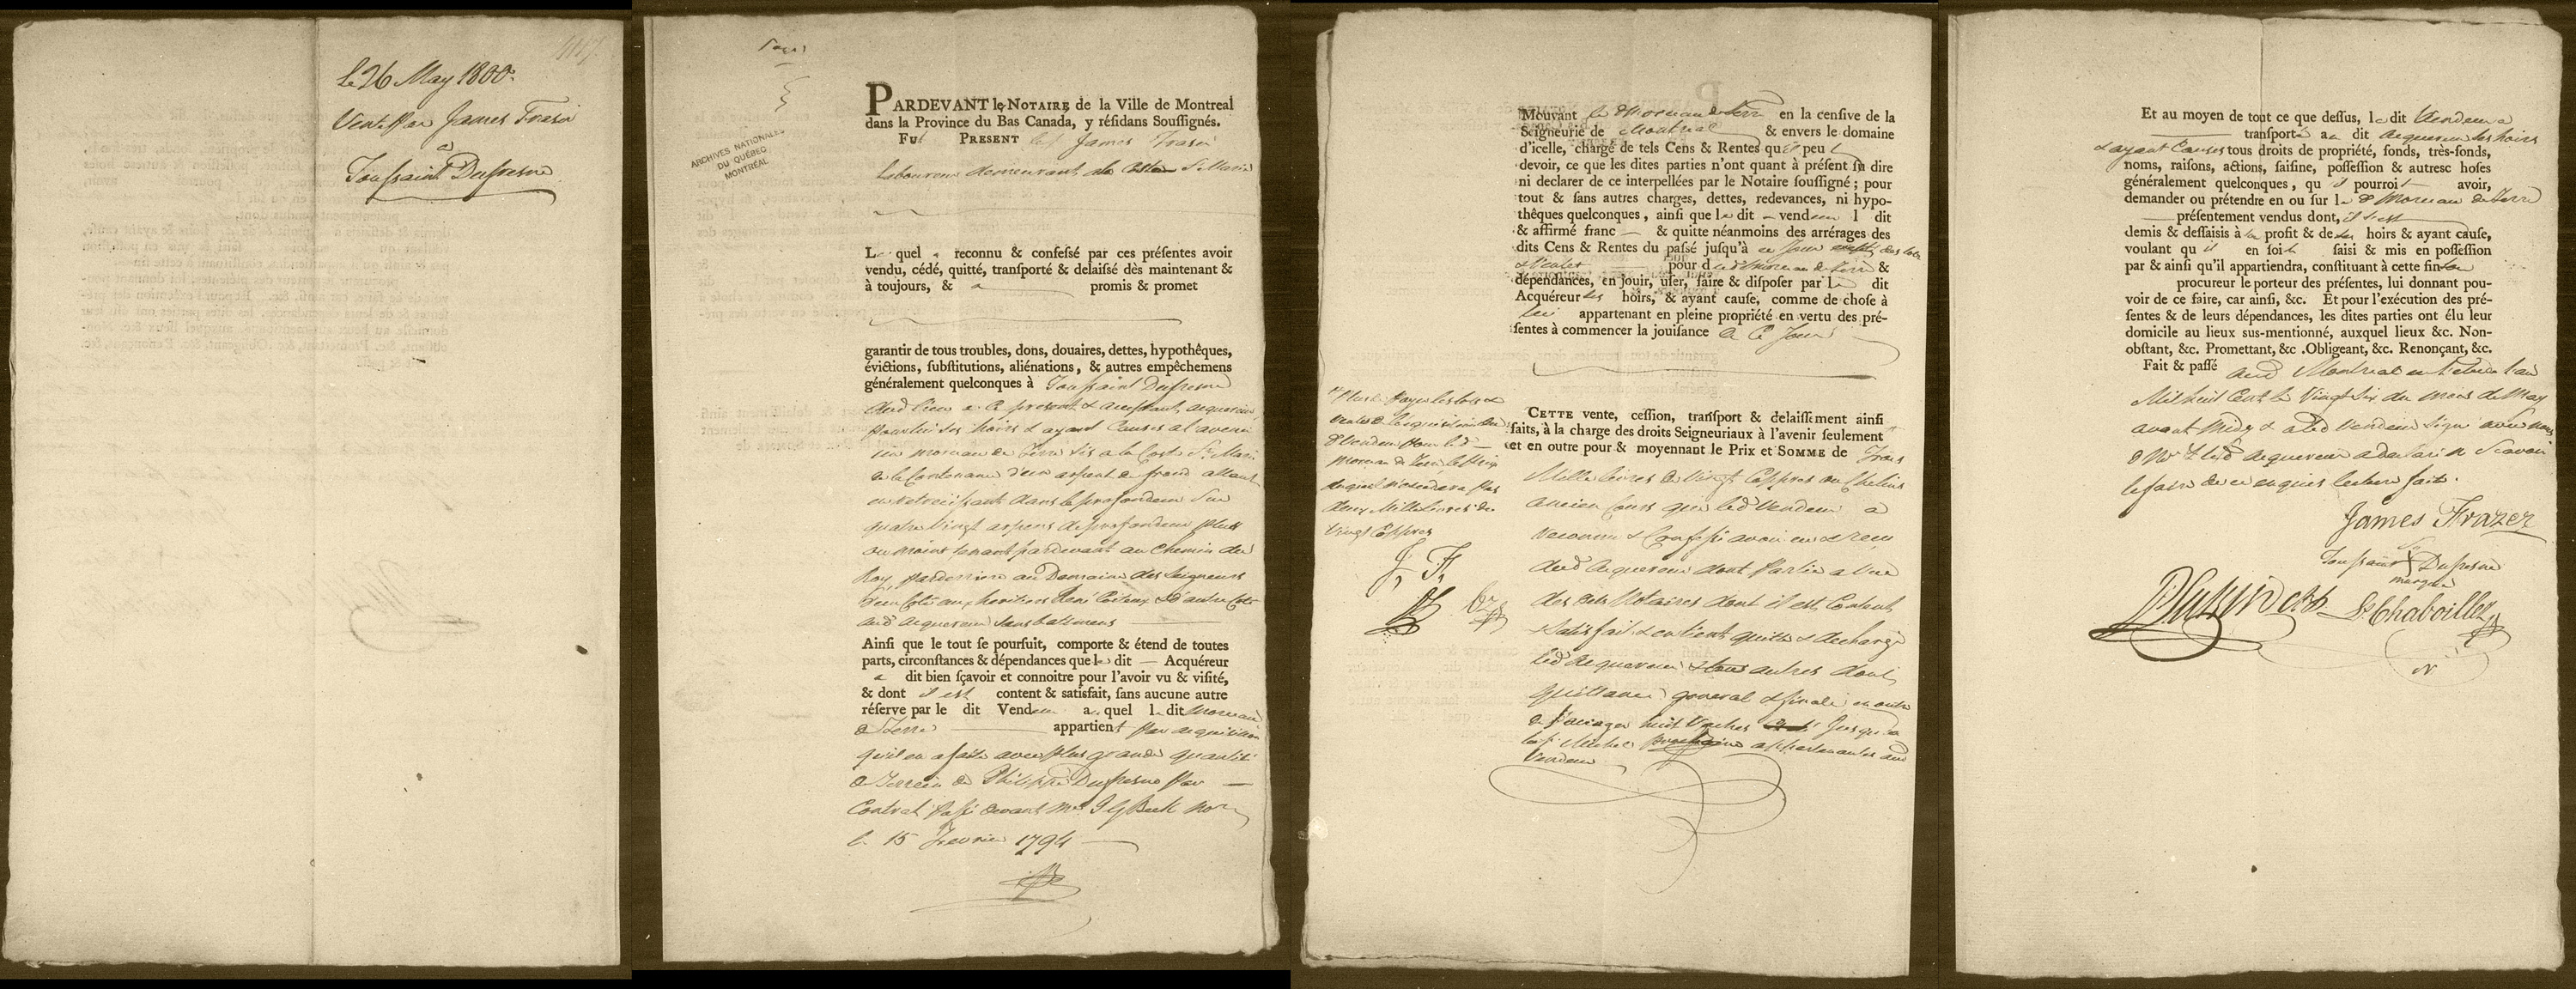 le 26 May 1800.
Vente Par James Frasr
a
Toussaint Dufresne
ARCHIVES NATIONALES
DU QUÉBEC
MONTRÉAL
PARDEVANT le NOTAIRE de la Ville de Montreal
dans la Province du Bas Canada, y résidans Soussignés.
FUt PRESENT James Fraser
Laboureur demeurant a la Coste St Marie
Le quel a reconnu & confessé par ces présentes avoir
vendu, cédé, quitté, transporté & delaissé dès maintenant &
à toujours, & a promis & promet
garantir de tous troubles, dons, douaires, dettes, hypothêques,
évictions, substitutions, aliénations, & autres empêchemens
généralement quelconques à Toussaint Dufresne
dud lieu a ce present & acceptant acquereur
pour lui ses hoirs & ayant Causes al avenir
un morceau de Terre sis a la Coste St Marie
de la Contenance d'un arpent de front allant
en retrecissant dans la profondeur Sur
quatre Vingt arpens de profondeur plus
ou moins tenant pardevant au Chemin du
Roy, par derriere au Domaine des Seigneurs
d'un Coté aux heritiers René & d'autre Coté
aud acquereur Sans batimens
Ainsi que le tout se poursuit, comporte & étend de toutes
parts, circonstances & dépendances que le dit Acquéreur
a dit bien sçavoir et connoitre pour l'avoir vu & visité,
& dont il est content & satisfait, sans aucune autre
réserve par le dit Vendeur auquel le dit morceau
de Terre appartient par acquisition
qu'il en a faite avec plus grande quantité
de Terrein de Philippe Dufresne par
Contrat Passé devant Me J G Beek Nore
le 15 Fevrier 1794
Mouvant le d Morceau de Terre en la censive de la
Seigneurie de Montreal & envers le domaine
d'icelle, chargé de tels Cens & Rentes qu'il peut
devoir, ce que les dites parties n'ont quant à présent su dire
ni declarer de ce interpellées par le Notaire soussigné ; pour
tout & sans autres charges, dettes, redevances, ni hypo-
thêques quelconques, ainsi que le dit vendeur l dit
& affirmé franc & quitte néanmoins des arrérages des
dits Cens & Rentes du passé jusqu'à ce Jour des lots
& Ventes pour du d Morceau de Terre &
dépendances, en jouir, user, faire & disposer par Le dit
Acquéreur ses hoirs, & ayant cause, comme de chose à
lui appartenant en pleine propriété en vertu des pré-
sentes à commencer la jouissance de Ce Jour
CETTE vente, cession, transport & delaissement ainsi
faits, à la charge des droits Seigneuriaux à l'avenir seulement
et en outre pour & moyennant le Prix et SOMME de Trois
Mille livres de Vingt Coppres ou Chelins
ancien Cours que led Vendeur a
reconnu & Confessé avoir eu & recu
dud acquereur dont Partie a Vue
des dits Notaires dont il est Content
& Satisfait & en tient quitte & decharge
led acquereur & tous autres dont
Quittance general & finale en outre
huit Vaches Jusqu'a
la St Michel prochaine appartenantes aud
Vendeur
de payer les lots &
ventes de l'acquisition du
d Vendeur pour led
morceau de Terre
duquel n'excedera pas
deux Mille livres de
Vingt Coppres
J, F,
Et au moyen de tout ce que dessus, le dit Vendeur a
transporté au dit acquereur ses hoirs
& ayant Causes tous droits de propriété, fonds, très-fonds,
noms, raisons, actions, saisine, possession & autresc hoses
généralement quelconques, qu il pourroit avoir,
demander ou prétendre en ou sur le d Morceau de Terre
présentement vendus dont, il s'est
demis & dessaisis à son profit & de ses hoirs & ayant cause,
voulant qu il en soit saisi & mis en possession
par & ainsi qu'il appartiendra, constituant à cette fin son
procureur le porteur des présentes, lui donnant pou-
voir de ce faire, car ainsi, &c. Et pour l'exécution des pré-
sentes & de leurs dépendances, les dites parties ont élu leur
domicile au lieux sus-mentionné, auxquel lieux &c. Non-
obstant, &c. Promettant, &c .Obligeant, &c. Renonçant, &c.
Fait & passé aud Montreal en l'etude l'an
Mil huit Cent le Vingt Six du mois de May
avant Midy & a led Vendeur Signé avec nous
d Nores & led acquereur a declaré ne Scavoir
le faire de ce enquis lecture faite.
James Frazer
Toussaint Dufresne
marque
Ls Chaboillez
N